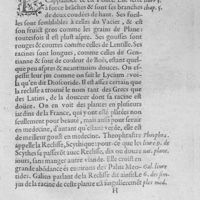 force brâches & sont ses branches chap. 5.
de deux coudées de haut. Ses fueil-
les sont semblables à celles du Vacier, & est
son fruict gros comme les grains de Plane:
toutesfois il est plus aspre. Ses goussses sont
rouges & courtes comme celles de Lentille. Ses
racines sont longues, comme celles de Gen-
tiane & sont de couleur de Boüis, estant quel-
que peu aspres & neantmoins douces. On es-
pessit leur jus comme on fait le Lycium. voi-
là qu'en dit Dioscoride. Il est assez certain que
la reclisse a trouué le nom tant des Grecs que
des Latins, de la douceur dont sa racine est
doüée. On en voit des plantes en plusieurs
jardins de la France, qui y ont esté plantées non
pour la recreation, mais pour auoir sa racine
en medecine, d'autant qu'estant verde, elle est
de meilleur goust en medecine. Theophraste Theophra.
appelle la Reclisse, Scythique: pour-ce que les liure 9. de
Scythes se passent auec Reclisse, dix ou douze nat. plant.
jours, sans manger autre viande. Elle croist en
grande abõdance és enuirons des Palus Meo- Gal. liure
tides. Galien parlant de la Reclisse dit ainsi: Le 6. des sim-
jus de la racine de ceste plante est singulierement ples med.
H